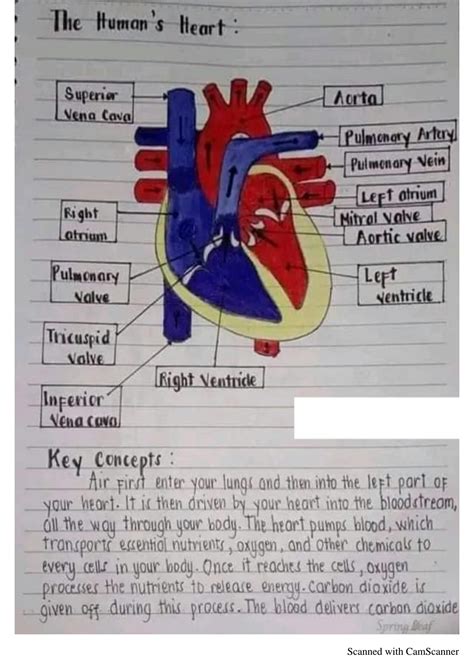 The Human's Heart :
Superior
Vena Cava
Aorta
Pulmonary Artery
Pulmonary Vein
Left atrium
Mitral Valve
Aortic valve
Right
atrium
Left
ventricle
Pulmonary
Valve
Tricuspid
Valve
Right Ventricle
Inferior
Vena cava
Key Concepts :
Air first enter your lungs and then into the left part of
your heart. It is then driven by your heart into the bloodstream,
all the way through your body. The heart pumps blood, which
transports essential nutrients, oxygen, and other chemicals to
every cells in your body. Once it reaches the cells, oxygen
processes the nutrients to release energy. Carbon dioxide is
given off during this process. The blood delivers carbon dioxide
Spring Leaf
Scanned with CamScanner